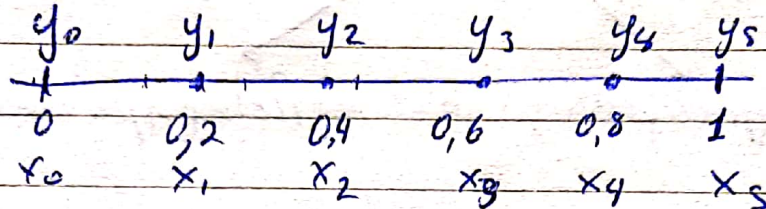 y₀ y₁ y₂ y₃ y₄ y₅
0 0,2 0,4 0,6 0,8 1
x₀ x₁ x₂ x₃ x₄ x₅